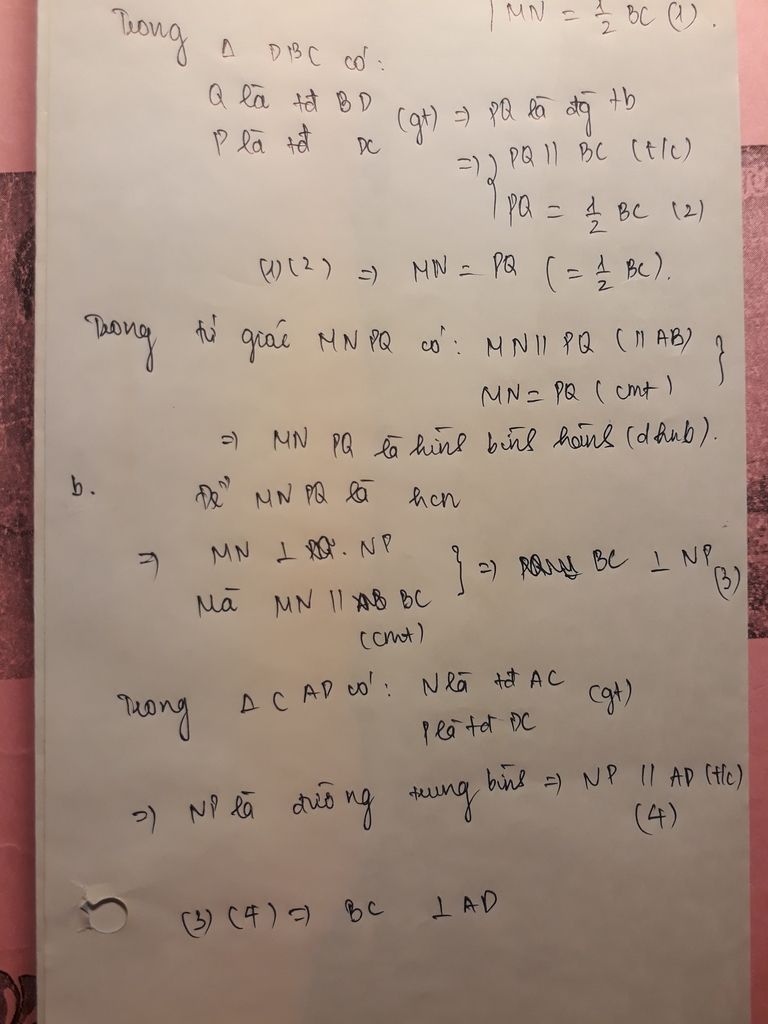 MN = 1/2 BC (1).
Trong Δ DBC có:
Q là tđ BD
P là tđ DC (gt) => PQ là đg tb
=> { PQ // BC (t/c)
PQ = 1/2 BC (2)
(1)(2) => MN = PQ (= 1/2 BC).
Trong tứ giác MNPQ có: MN // PQ (// AB) }
MN = PQ (cmt)
=> MN PQ là hình bình hành (dhnb).
b. Để MN PQ là hcn
=> MN ⊥ NP } => BC ⊥ NP (3)
Mà MN // BC
(cmt)
Trong Δ CAD có: N là tđ AC (gt)
P là tđ DC
=> NP là đường trung bình => NP // AD (t/c)
(4)
(3) (4) => BC ⊥ AD